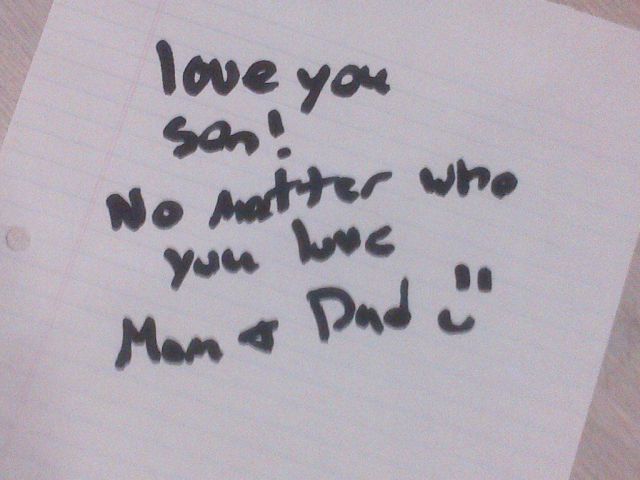 love you
son!
No matter who
you love
Mom & Dad